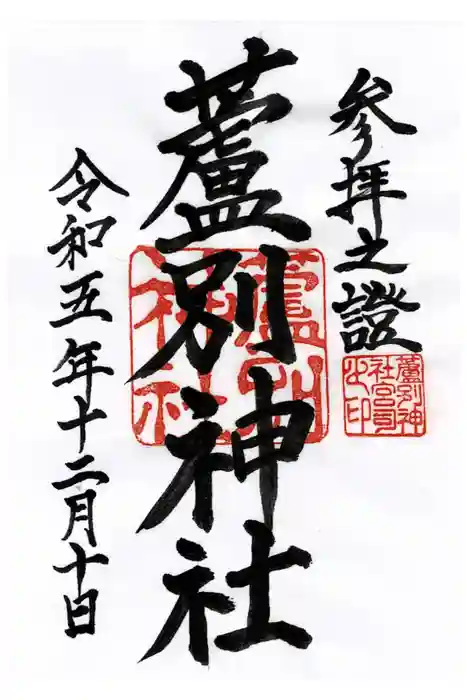 参拝之證
蘆別神社
令和五年十二月十日
蘆別
神社
蘆別神
社宮司
之印